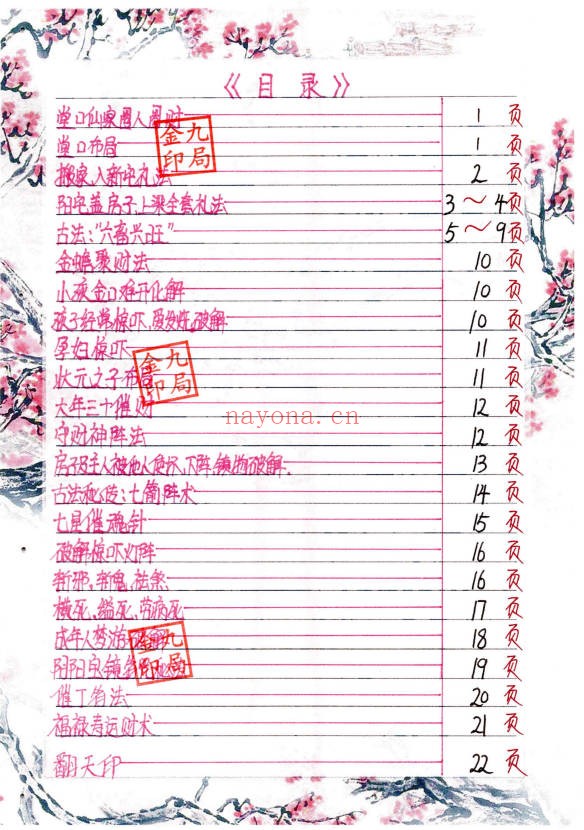 《目录》
堂口仙家圈人圈财 1 页
堂口布局 1 页
搬家入新宅礼法 2 页
阳宅盖房子、上梁全套礼法 3～4页
古法:"六畜兴旺" 5～9页
金蟾聚财法 10 页
小孩金口难开化解 10 页
孩子经常惊吓、爱发烧、破解 10 页
孕妇惊吓 11 页
状元之子布局 11 页
大年三十催财 12 页
守财神阵法 12 页
房子及主人被他人使坏、下阵、镇物破解. 13 页
古法秘 : 七箭阵术 14 页
七星催魂针 15 页
破解惊吓火阵 16 页
斩邪、斩鬼、祛煞 16 页
横死、缢死、劳病死 17 页
成年人梦游破解 18 页
阴阳宝镜 19 页
催丁 法 20 页
福禄寿运财术 21 页
翻天印 22 页
金九印局
金九印局
金九印局
nayona.cn